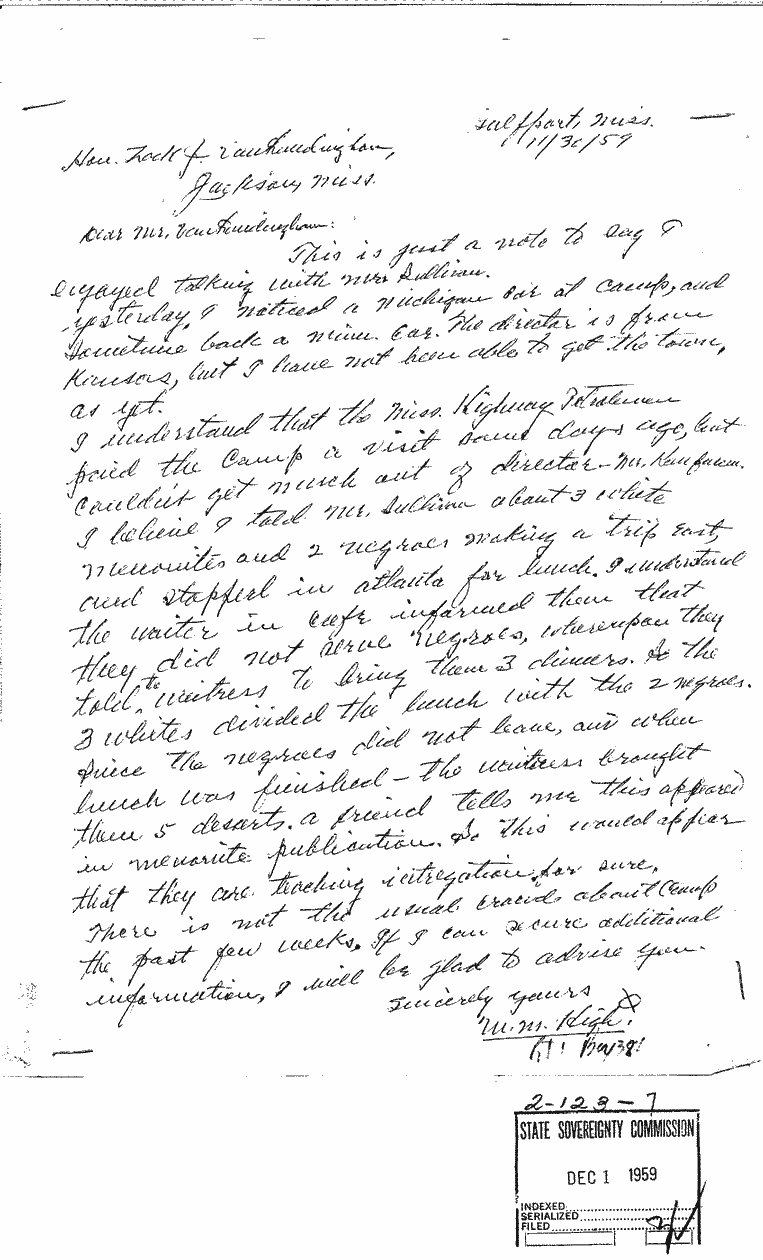 Gulfport, Miss.
11/30/59
Hon. Zack J. VanLandingham,
Jackson, Miss.
Dear Mr. VanLandingham:
This is just a note to say I
enjoyed talking with Mr. Sullivan.
yesterday, I noticed a Michigan car at camp, and
sometime back a Minn. car. The director is from
Kansas, but I have not been able to get the town,
as yet.
I understand that the Miss. Highway Patrolmen
paid the Camp a visit some days ago, but
couldn't get much out of director - Mr.
I believe I told Mr. Sullivan about 3 white
Menonites and 2 negroes making a trip East,
and stopped in Atlanta for lunch. I understand
the waiter in cafe informed them that
they did not serve negroes, whereupon they
told the waitress to bring them 3 dinners. So the
3 whites divided the lunch with the 2 negroes.
Since the negroes did not leave, and when
lunch was finished - the waitress brought
them 5 deserts. A friend tells me this appeared
in menonite publication. So this would appear
that they are teaching intregation for sure.
There is not the usual crowds about Camp
the past few weeks. If I can secure additional
information, I will be glad to advise you.
Sincerely yours
M.M. High.
Rt 1 Box 381
2-123-7
STATE SOVEREIGNTY COMMISSION
DEC 1 1959
INDEXED
SERIALIZED
FILED